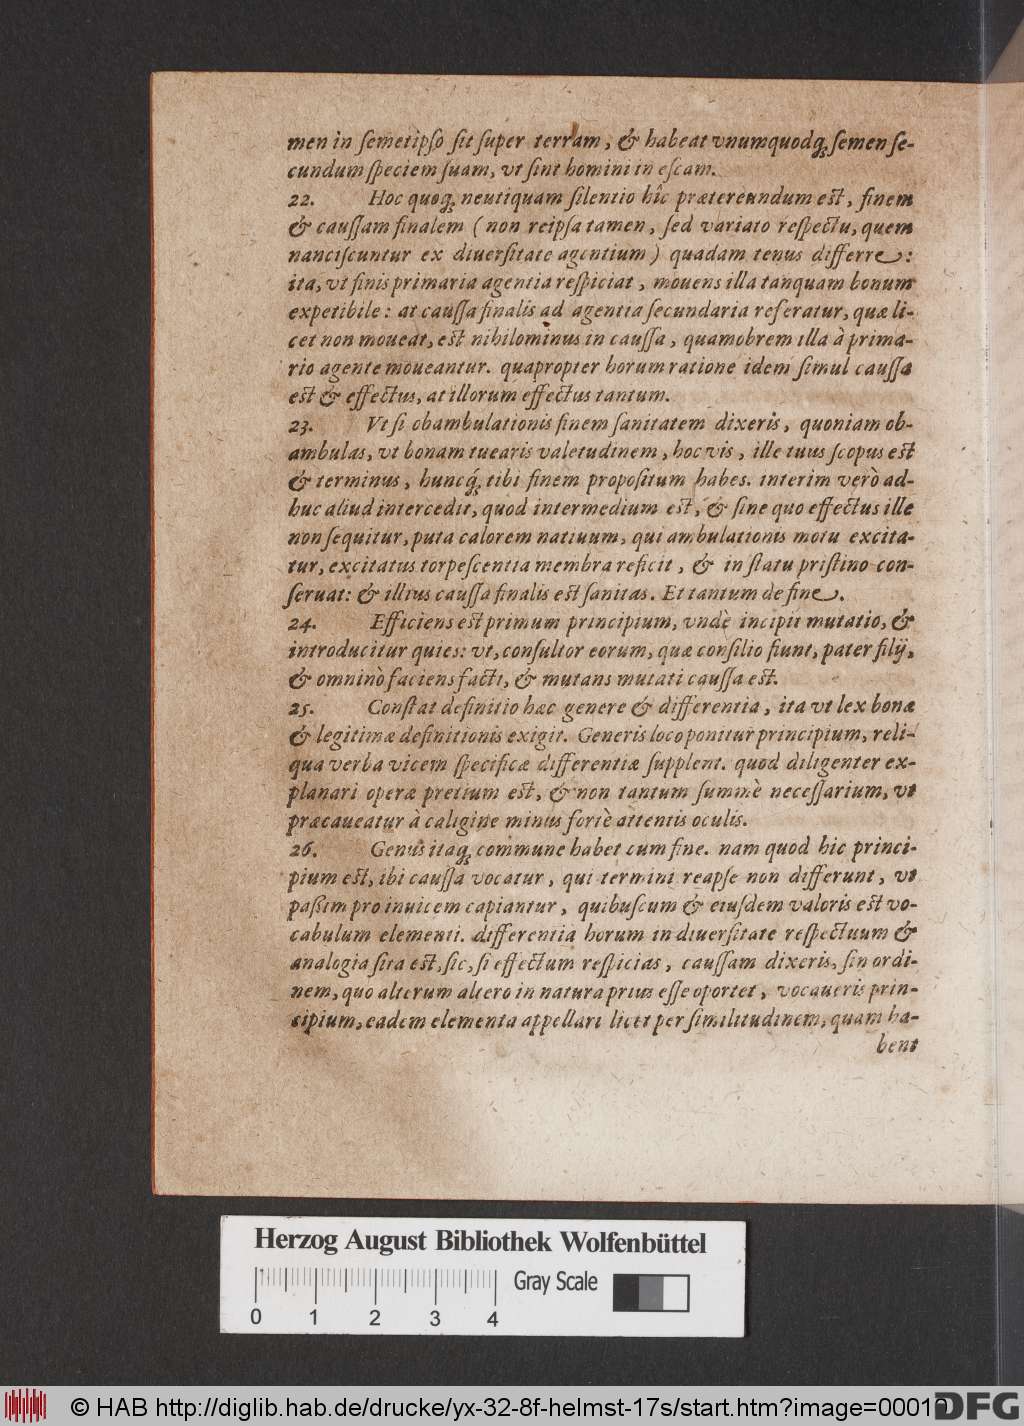 men in semetipso sit super terram, & habeat vnumquodq́; semen se-
cundum speciem suam, vt sint homini in escam.
22. Hoc quoq; neutiquam silentio hîc prætereundum est, finem
& caussam finalem (non reipsa tamen, sed variato respectu, quem
nanciscuntur ex diuersitate agentium) quadam tenus differre:
ita, vt finis primaria agentia respiciat, mouens illa tanquam bonum
expetibile: at caussa finalis ad agentia secundaria referatur, quæ li-
cet non moueat, est nihilominus in caussa, quamobrem illa à prima-
rio agente moueantur. quapropter horum ratione idem simul caussa
est & effectus, at illorum effectus tantum.
23. Vt si obambulationis finem sanitatem dixeris, quoniam ob-
ambulas, vt bonam tuearis valetudinem, hoc vis, ille tuus scopus est
& terminus, huncq́; tibi finem propositum habes. interim verò ad-
huc aliud intercedit, quod intermedium est, & sine quo effectus ille
non sequitur, puta calorem natiuum, qui ambulationis motu excita-
tur, excitatus torpescentia membra reficit, & in statu pristino con-
seruat: & illius caussa finalis est sanitas. Et tantum de fine.
24. Efficiens est primum principium, vndè incipit mutatio, &
introducitur quies: vt, consultor eorum, quæ consilio fiunt, pater filij,
& omninò faciens facti, & mutans mutati caussa est.
25. Constat definitio hæc genere & differentia, ita vt lex bonæ
& legitimæ definitionis exigit. Generis loco ponitur principium, reli-
qua verba vicem specificæ differentiæ supplent. quod diligenter ex-
planari operæ pretium est, & non tantum summè necessarium, vt
præcaueatur à caligine minus fortè attentis oculis.
26. Genus itaq; commune habet cum fine. nam quod hic princi-
pium est, ibi caussa vocatur, qui termini reapse non differunt, vt
paßim pro inuicem capiantur, quibuscum & eiusdem valoris est vo-
cabulum elementi. differentia horum in diuersitate respectuum &
analogia sita est, sic, si effectum respicias, caussam dixeris, sin ordi-
nem, quo alterum altero in natura prius esse oportet, vocaueris prin-
cipium, eadem elementa appellari licet per similitudinem, quam ha-
bent
Herzog August Bibliothek Wolfenbüttel
Gray Scale
0 1 2 3 4
© HAB http://diglib.hab.de/drucke/yx-32-8f-helmst-17s/start.htm?image=00010
DFG